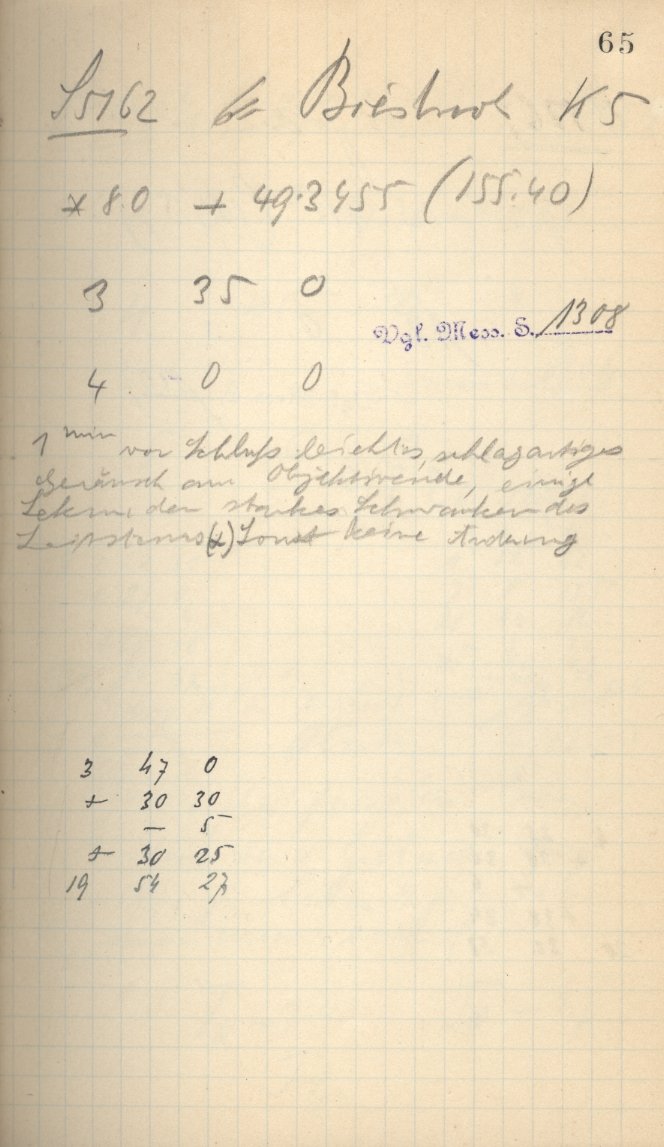 65
S5162 Biesbroek K5
* 80 + 49.3455 (155.40)
3 35 0
Vgl. Mess. S. 1308
4 0 0
1 min vor Schluß leichtes, schlagartiges
Geräusch am Objektivende, einige
starkes Schwanken des
(*) Sonst keine Änderung
3 47 0
+ 30 30
— 5
+ 30 25
19 54 27